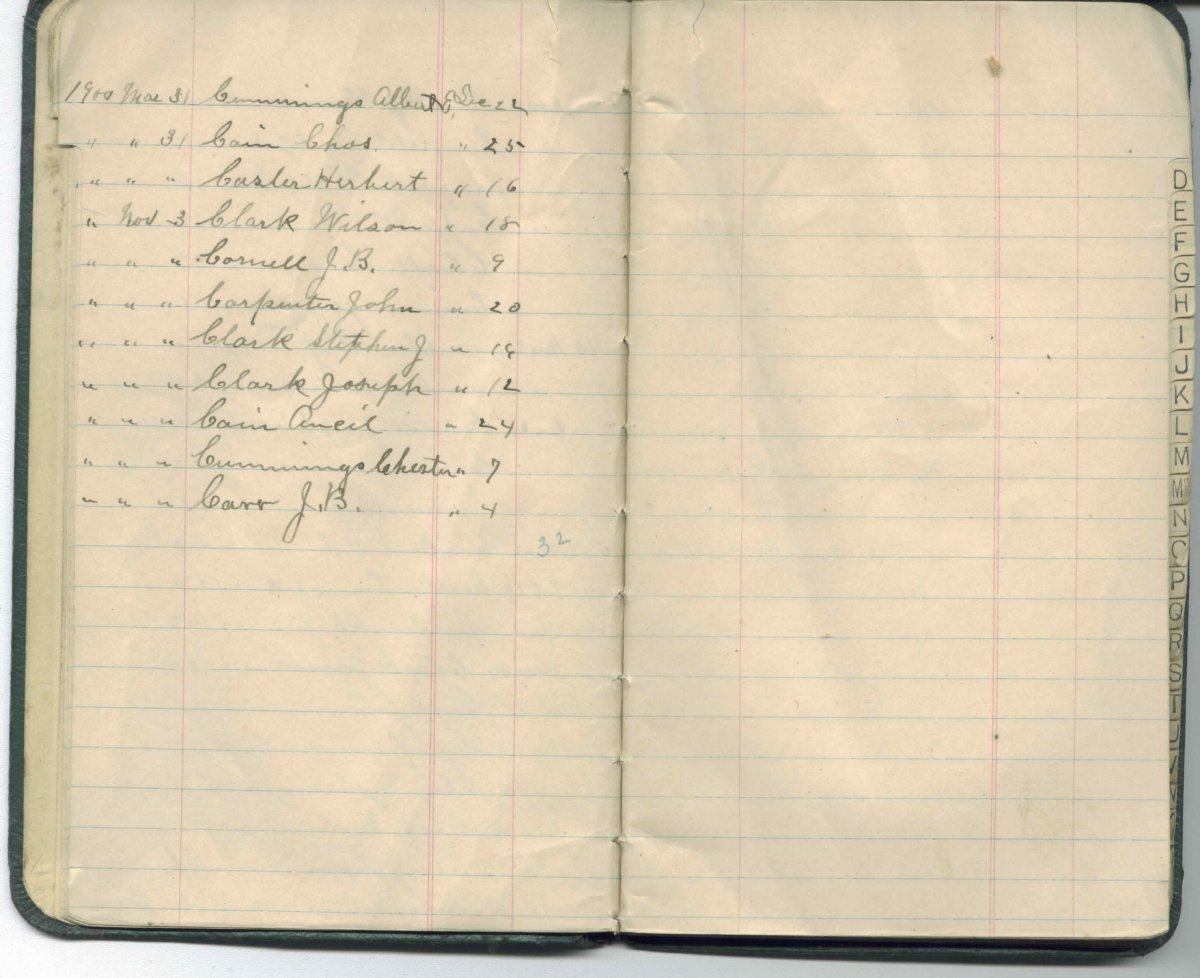 1900 Mar 31 Cummings Albert Sec 22
" " 31 Cain Chas. " 25
" " " Casler Herbert " 16
" Nov 3 Clark Wilson " 18
" " " Cornell J.B. " 9
" " " Carpenter John " 20
" " " Clark Stephen J " 18
" " " Clark Joseph " 12
" " " Cain Ancil " 24
" " " Cummings Chester " 7
" " " Carr J.B. " 4
32
D
E
F
G
H
I
J
K
L
M
Mc
N
O
P
Q
R
S
T